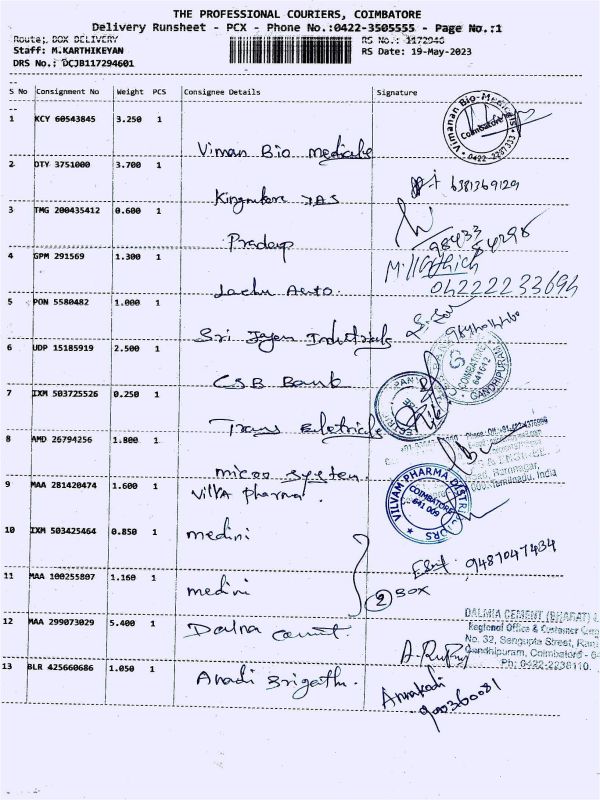 THE PROFESSIONAL COURIERS, COIMBATORE
Delivery Runsheet - PCX - Phone No.:0422-3505555 - Page No.:1
Route: BOX DELIVERY
Staff: M.KARTHIKEYAN
DRS No.: DCJB117294601
RS No.: 1172946
RS Date: 19-May-2023
S No Consignment No Weight PCS Consignee Details Signature
1 KCY 60543845 3.250 1
Viman Bio Medicals
Vimanan Bio-Medicals
Coimbatore
0422-2207333
2 DTY 3751000 3.700 1
6381369129
3 TMG 200435412 0.600 1
Pradeep
98433
54298
4 GPM 291569 1.300 1
M. Karthick
04222233694
5 PON 5580482 1.000 1
Sri Jayam Industrials
6 UDP 15185919 2.500 1
CSB Bank
COIMBATORE
641012
GANDHIPURAM
7 IXM 503725526 0.250 1
Trans Eletricals
8 AMD 26794256 1.800 1
micro System
Ramnagar,
Tamilnadu, India
9 MAA 281420474 1.600 1
Vilva pharma.
VILVAM PHARMA DISTRIBUTORS
COIMBATORE
641 009
10 IXM 503425464 0.850 1
medini
9487047434
11 MAA 100255807 1.160 1
medini
2 BOX
12 MAA 299073029 5.400 1
DALMIA CEMENT (BHARAT)
Regional Office & Customer
No. 32, Sengupta Street,
Gandhipuram, Coimbatore - 6
Ph: 0422-2238110.
13 BLR 425660686 1.050 1